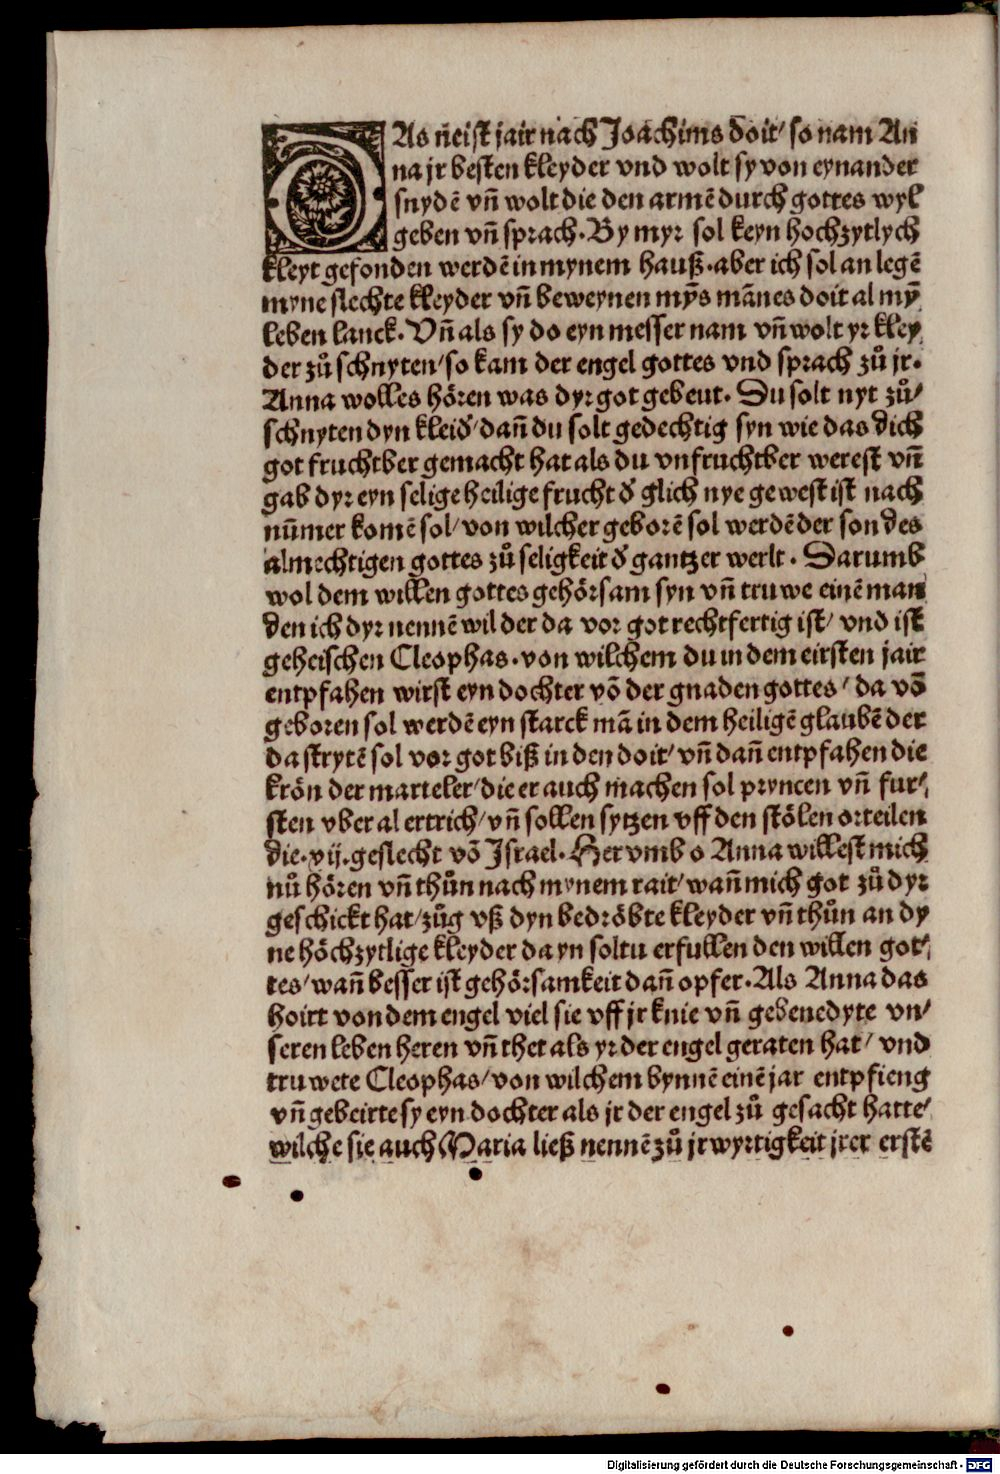 DAs neist jair nach Joachims doit/ so nam An
na jr besten kleyder vnd wolt sy von eynander
snydē vn̄ wolt die den armē durch gottes wyl
geben vn̄ sprach. By myr sol keyn hochzytlych
kleyt gefonden werdē in mynem hauß. aber ich sol an legē
myne slechte kleyder vn̄ beweynen mȳs mānes doit al mȳ
leben lanck. Vn̄ als sy do eyn messer nam vn̄ wolt yr kley
der zů schnyten/ so kam der engel gottes vnd sprach zů jr.
Anna wolles hören was dyr got gebeut. Du solt nyt zů/
schnyten dyn kleid'/ dan̄ du solt gedechtig syn wie das dich
got fruchtber gemacht hat als du vnfruchtber werest vn̄
gab dyr eyn selige heilige frucht d' glich nye gewest ist nach
nūmer komē sol/ von wilcher geborē sol werdē der son des
almechtigen gottes zů seligkeit d' gantzer werlt. Darumb
wol dem willen gottes gehörsam syn vn̄ truwe einē man
den ich dyr nennē wil der da vor got rechtfertig ist/ vnd ist
geheischen Cleophas. von wilchem du in dem eirsten jair
entpfahen wirst eyn dochter vō der gnaden gottes/ da vō
geboren sol werdē eyn starck mā in dem heiligē glaubē der
da strytē sol vor got biß in den doit/ vn̄ dan̄ entpfahen die
krön der marteler/ die er auch machen sol pryncen vn̄ fur/
sten vber al ertrich/ vn̄ sollen sytzen vff den stölen orteilen
die. vij. geslecht vō Israel. Her vmb o Anna willest mich
nů hören vn̄ thůn nach mynem rait/ wan̄ mich got zů dyr
geschickt hat/ zůg vß dyn bedröbte kleyder vn̄ thůn an dy
ne höchzytlige kleyder da yn soltu erfullen den willen got/
tes/ wan̄ besser ist gehörsamkeit dan̄ opfer. Als Anna das
hoirt von dem engel viel sie vff jr knie vn̄ gebenedyte vn/
seren leben heren vn̄ thet als yr der engel geraten hat/ vnd
truwete Cleophas/ von wilchem bynnē einē jar entpfieng
vn̄ gebeirte sy eyn dochter als jr der engel zů gesacht hatte/
wilche sie auch Maria ließ nennē zů jr wyrtigkeit jrer erstē
Digitalisierung gefördert durch die Deutsche Forschungsgemeinschaft - DFG